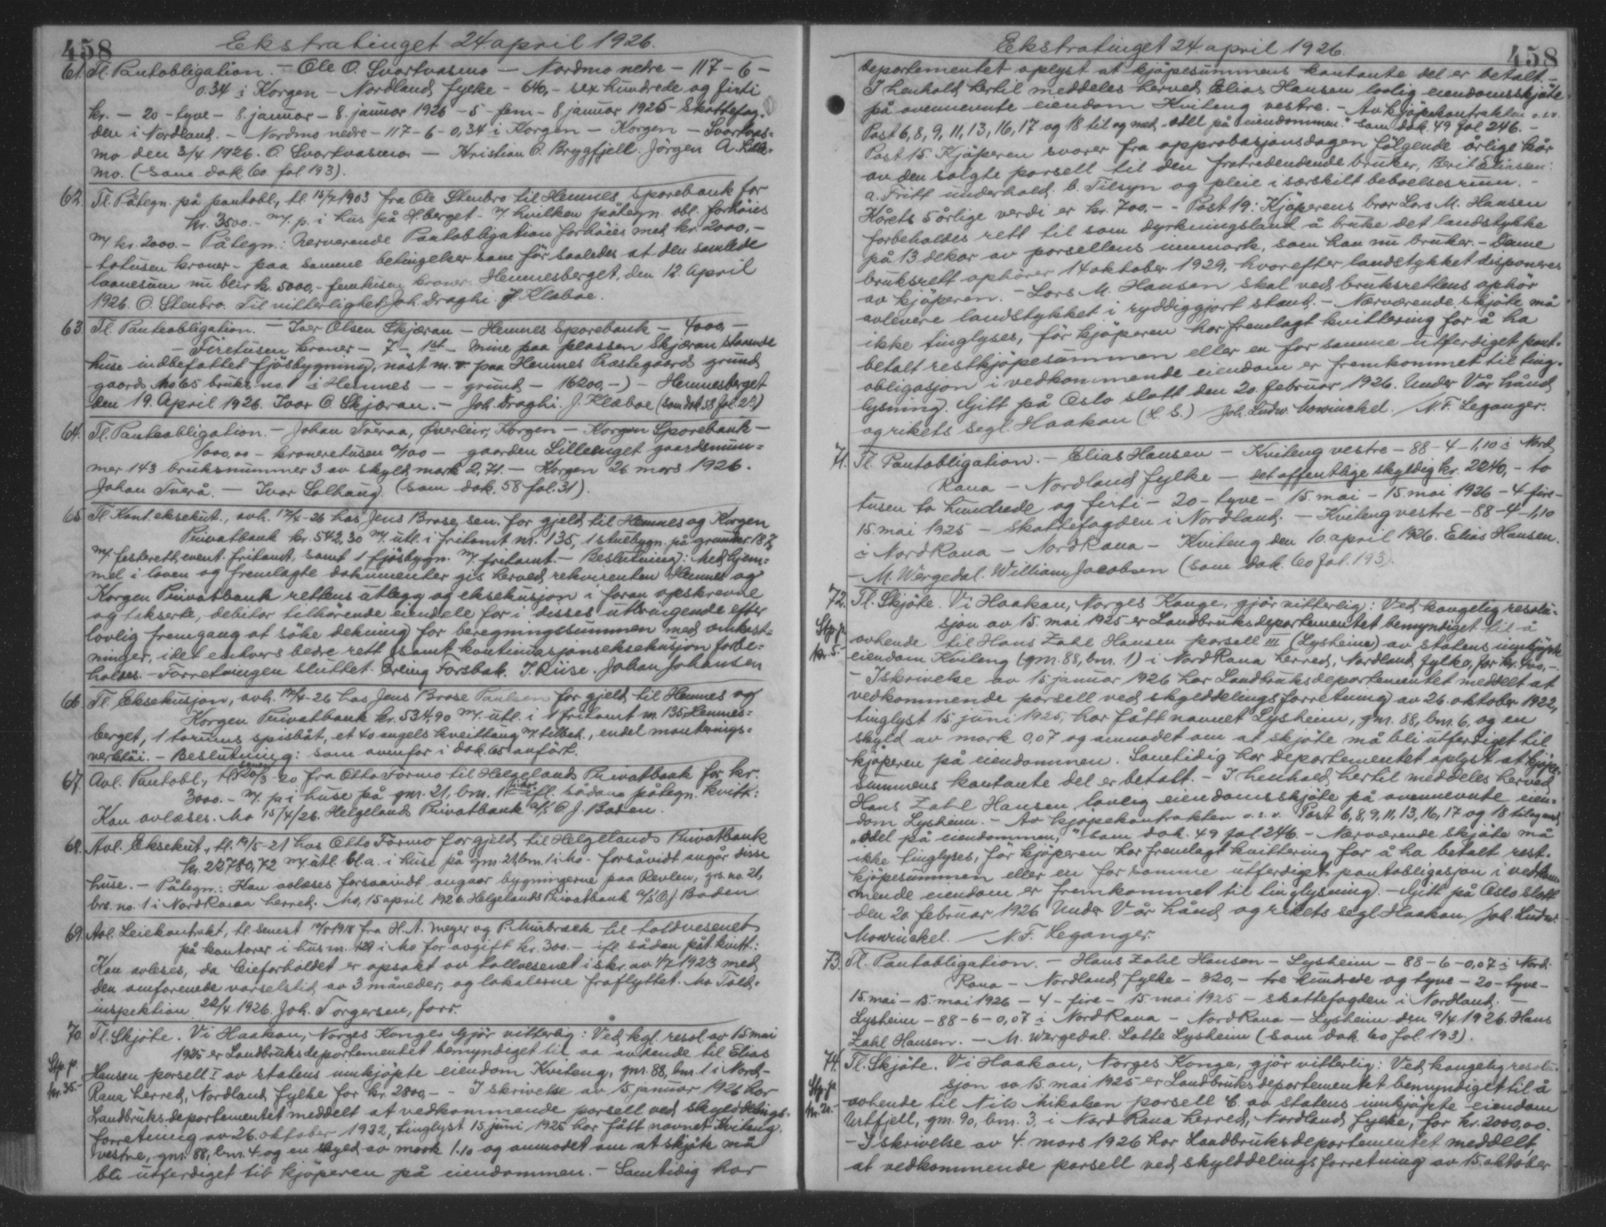 458 Ekstratinget 24 april 1926.
61. Tl. Pantobligation. - Ole O. Svartvasmo - Nordmo nedre - 117 - 6 -
0.34 i Korgen - Nordland fylke - 640,- sex hundrede og firti
kr. - 20 - tyve - 8. januar - 8. januar 1926 - 5 - fem - 8 januar 1925 - Skattefog-
den i Nordland. - Nordmo nedre - 117 - 6 - 0,34 i Korgen - Korgen - Svartvas-
mo den 3/4 1926. O. Svartvasmo - Kristian P. Bryggfjell. Jörgen A.
mo. (Som dok 60 fol 193).
62. Tl. Påtegn. på pantobl., tl. 15/7 1903 fra Ole Stenbro til Hemnes sparebank for
kr. 3500.- m/ p. i hus på Hberget - v/ hvilken påtegn. obl. forhöies
m/ kr. 2000.- Påtegn.: Nærværende Pantobligation forhöies med kr. 2000,-
- totusen kroner - paa samme betingelser som för saaledes at den samlede
laanesum nu blir kr. 5000,- femtusen kroner. Hemnesberget, den 12 april
1926. O. Stenbro. Til vitterlighet: Joh. Draghi. J. Klæboe.
63. Tl. Panteobligation. - Iver Olsen Skjæran - Hemnes Sparebank - 4000,-
- Firetusen kroner - 7 - 14 - mine paa plassen Skjæran staaende
huse indbefattet fjösbygning, näst m. v. paa Hemnes Prestegaards grund
gaards No 65 bruks no i Hemnes - - grund - 16200,-) - Hemnesberget
den 19. April 1926. Ivar O. Skjæran. - Joh. Draghi. J. Klæboe (som dok. 58 fol 22)
64. Tl. Panteobligation. - Johan Tveraa, Överleir, Korgen - Korgen Sparebank -
1000,00 - kroneretusen 0/00 - gaarden Lilleenget gaardsnum-
mer 143 bruksnummer 3 av skyld mark 2,71. - Korgen 26 mars 1926.
Johan Tverå. - Ivar Solhaug (som dok. 58 fol. 31).
65. Tl. Kont. eksekut., avh. 17/4-26 hos Jens Brose sen. for gjeld til Hemnes og Korgen
Privatbank kr. 542,30 m/ utl. i fritamt nr. 135, 1 stuebygn. på grunnen 18.7,
m/ festerett, event. fritamt, samt 1 fjösbygn. m/ fritamt - Beslutning: Med hjem-
mel i loven og fremlagte dokumenter gis herved rekvirenten Hemnes og
Korgen Privatbank rettens utlegg og eksekusjon i foran opskrevne
og takserte, debitor tilhörende eiendele for i disses utbringende efter
lovlig fremgang at söke dekning for beregningssummen med omkost-
ninger, idet enhvers bedre rett samt kontinuasjonseksekusjon forbe-
holdes. - Forretningen sluttet. Erling Forsbak. T. Riise. Johan Johansen
66. Tl. Eksekusjon, avh. 17/4-26 hos Jens Brose for gjeld til Hemnes og
Korgen Privatbank kr. 534,90 m/ utl. i 1 fritamt nr. 135, Hemnes-
berget, 1 torums spisbåt, et 40 angels kveitegang m/ tilbeh., endel monterings-
verktöi. - Beslutning: som ovenfor i dok. 65 anfört.
67. Avl. Pantobl., tl. 20/3 20 fra Otto Formo til Helgelands Privatbank for kr.
3000.- m/ p. i huse på gnr. 21, bnr. 1 ifl. sådan påtegn. kvitt:
Kan avlæses. Mo 15/4/26. Helgelands Privatbank A/S O. J. Baden.
68. Avl. Eksekut., tl. 19/5-21 hos Otto Formo for gjeld til Helgelands Privatbank
kr. 22780,72 m/ utl. bl. a. i huse på gnr 21, bnr. 1 i Mo - forsåvidt angår disse
huse. - Påtegn.: Kan avlæses forsaavidt angaar bygningerne paa Revlen, grs. no 21,
brs. no. 1 i Nord Ranen herred. Mo, 15 april 1926 Helgelands Privatbank A/S O. J. Baden
69. Avl. Leiekontrakt, tl. senest 17/5 1918 fra H. A. Meyer og P. Murbræk til toldvesenet
på kontorer i hus nr. 129 i Mo for avgift kr. 300.- ifl. sådan påt. kvitt.:
Kan avleses, da leieforholdet er opsakt av tollvesenet i skr. av 1/7 1923 med
den omforenede varselstid av 3 måneder, og lokalerne fraflyttet. Mo Told-
inspektion 22/4 1926. Joh. Torgersen, forr.
70. Tl. Skjöte. Vi Haakon, Norges Konge, gjör vitterlig: Ved kgl. resol. av 15 mai
1925 er Landbruksdepartementet bemyndiget til aa avhende til Elias
Stp. p.
kr. 35-
Hansen parsell I av statens innkjöpte eiendom Kviteng, gnr. 88, bnr. 1 i Nord-
Rana herred, Nordland fylke for kr. 2800,- - I skrivelse av 15 januar 1926 har
Landbruksdepartementet meddelt at vedkommende parsell ved skylddelings-
forretning av 26. oktober 1922, tinglyst 15 juni 1925 har fått navnet Kviteng
vestre, gnr. 88, bnr. 4 og en skyld av mark 1.10 og anmodet om at skjöte må
bli utferdiget til kjöperen på eiendommen. - Samtidig har
Ekstratinget 24 april 1926. 458
departementet oplyst at kjöpesummens kontante del er betalt.-
I henhold hertil meddeles herved Elias Hansen lovlig eiendomsskjöte
på ovennevnte eiendom Kviteng vestre. - Av kjöpekontrakten o.s.v.
Post 6, 8, 9, 11, 13, 16, 17 og 18 til og med "odel på eiendommen." Som dok. 49 fol 246. -
Post 15. Kjöperen svarer fra approbasjonsdagen fölgende årlige kår
av den solgte parsell til den fratredendende bruker, Berit Eliasen:
a. Fritt underhold, b. Tilsyn og pleie i særskilt beboelsesrum. -
Kårets 5 årlige verdi er kr. 700,- - Post 19: Kjöperens bror Lars M. Hansen
forbeholdes rett til som dyrkningsland å bruke det landstykke
på 13 dekar av parsellens innmark, som han nu bruker. - Denne
bruksrett ophörer 14 oktober 1929, hvorefter landstykket disponeres
av kjöperen. - Lars M. Hansen skal ved bruksrettens ophör
avlevere landstykket i ryddiggjort stand. - Nærværende skjöte må
ikke tinglyses, för kjöperen har fremlagt kvittering for å ha
betalt restkjöpesummen eller en for samme utferdiget pant-
obligasjon i vedkommende eiendom er fremkommet til ting-
lysning. Gitt på Oslo slott den 20. februar 1926. Under Vår hånd
og rikets segl. Haakon (L.S.) Joh. Ludw. Mowinckel. N. F. Leganger.
71. Tl. Pantobligation. - Elias Hansen - Kviteng vestre - 88 - 4 - 1,10 i Nord
Rana - Nordland fylke - det offentlige skyldig kr. 2240,- to
tusen to hundrede og firti - 20 - tyve - 15 mai - 15 mai 1926 - 4 - fire -
15 mai 1925 - skattefogden i Nordland. - Kviteng vestre - 88 - 4 - 1,10
i Nord Rana - Nord Rana - Kviteng den 10. april 1926. Elias Hansen.
- M. Wærgedal. William Jacobsen (som dok. 60 fol. 193).
72. Tl. Skjöte. Vi Haakon, Norges Konge, gjör vitterlig: Ved kongelig resolu-
sjon av 15 mai 1925 er Landbruksdepartementet bemyndiget til å
Stp. p.
kr. 5.-
avhende til Hans Zahl Hansen parsell III (Lysheim) av statens innkjöpte
eiendom Kviteng (gnr. 88, bnr. 1) i Nord Rana herred, Nordland fylke, for kr. 400,-
- I skrivelse av 15 januar 1926 har Landbruksdepartementet meddelt at
vedkommende parsell ved skylddelingsforretning av 26 oktober 1922,
tinglyst 15 juni 1925, har fått navnet Lysheim, gnr. 88, bnr. 6, og en
skyld av mark 0,07 og anmodet om at skjöte må bli utferdiget til
kjöperen på eiendommen. Samtidig har departementet oplyst at kjöpe-
summens kontante del er betalt. - I henhold hertil meddeles herved
Hans Zahl Hansen lovlig eiendomsskjöte på ovennevnte eien-
dom Lysheim. - Av kjöpekontrakten o.s.v. Post 6, 8, 9, 11, 13, 16, 17 og 18 til og med
"odel på eiendommen," som dok. 49 fol 246. - Nærværende skjöte må
ikke tinglyses, för kjöperen har fremlagt kvittering for å ha betalt rest-
kjöpesummen eller en for samme utferdiget pantobligasjon i vedkom-
mende eiendom er fremkommet til tinglysning. - Gitt på Oslo slott
den 20 februar 1926 Under Vår hånd og rikets segl. Haakon Joh. Ludw.
Mowinckel. - N. F. Leganger.
73. Tl. Pantobligation. - Hans Zahl Hansen - Lysheim - 88 - 6 - 0,07 i Nord-
Rana - Nordland fylke - 320,- tre hundrede og tyve - 20 - tyve -
15 mai - 15 mai 1926 - 4 - fire - 15 mai 1925 - skattefogden i Nordland. -
Lysheim - 88 - 6 - 0,07 i Nord Rana - Nord Rana - Lysheim den 9/4 1926. Hans
Zahl Hansen. - M. Wærgedal. Lotte Lysheim (som dok 60 fol 193).
74. Tl. Skjöte. Vi Haakon, Norges Konge, gjör vitterlig: Ved kongelig resolu-
sjon av 15. mai 1925 er Landbruksdepartementet bemyndiget til å
Stp. p.
kr. 25.-
avhende til Nils Mikalsen parsell 6 av statens innkjöpte eiendom
Urtfjell, gnr. 90, bnr. 3, i Nord Rana herred, Nordland fylke, for kr. 2000,00.
- I skrivelse av 4. mars 1926 har Landbruksdepartementet meddelt,
at vedkommende parsell ved skylddelingsforretning av 15. oktober